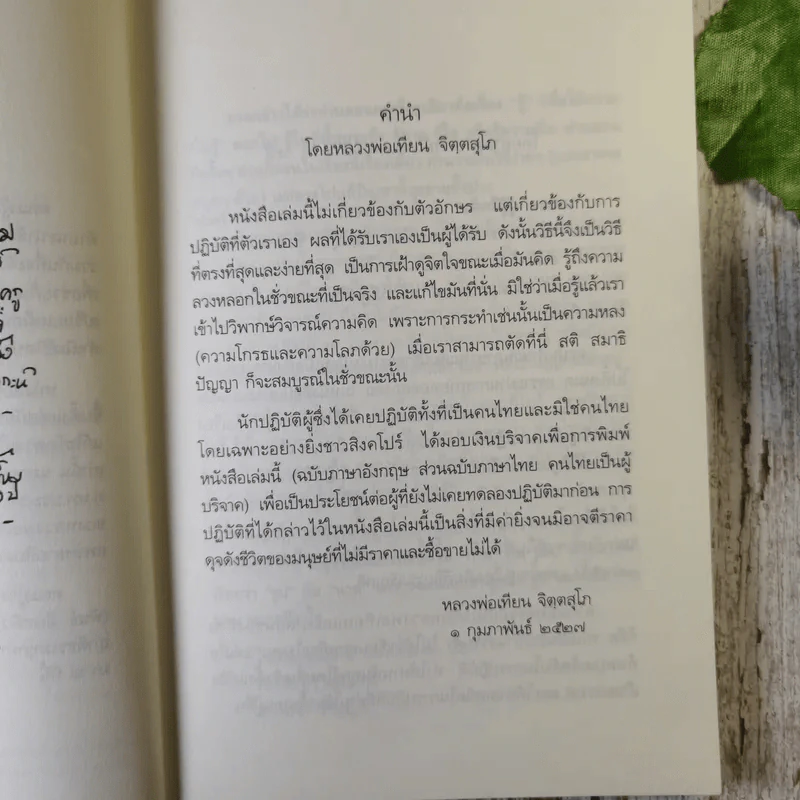 คำนำ
โดยหลวงพ่อเทียน จิตฺตสุโภ
หนังสือเล่มนี้ไม่เกี่ยวข้องกับตัวอักษร แต่เกี่ยวข้องกับการ
ปฏิบัติที่ตัวเราเอง ผลที่ได้รับเราเองเป็นผู้ได้รับ ดังนั้นวิธีนี้จึงเป็นวิธี
ที่ตรงที่สุดและง่ายที่สุด เป็นการเฝ้าดูจิตใจขณะเมื่อมันคิด รู้ถึงความ
ลวงหลอกในชั่วขณะที่เป็นจริง และแก้ไขมันที่นั่น มิใช่ว่าเมื่อรู้แล้วเรา
เข้าไปวิพากษ์วิจารณ์ความคิด เพราะการกระทำเช่นนั้นเป็นความหลง
(ความโกรธและความโลภด้วย) เมื่อเราสามารถตัดที่นี่ สติ สมาธิ
ปัญญา ก็จะสมบูรณ์ในชั่วขณะนั้น
นักปฏิบัติผู้ซึ่งได้เคยปฏิบัติทั้งที่เป็นคนไทยและมิใช่คนไทย
โดยเฉพาะอย่างยิ่งชาวสิงคโปร์ ได้มอบเงินบริจาคเพื่อการพิมพ์
หนังสือเล่มนี้ (ฉบับภาษาอังกฤษ ส่วนฉบับภาษาไทย คนไทยเป็นผู้
บริจาค) เพื่อเป็นประโยชน์ต่อผู้ที่ยังไม่เคยทดลองปฏิบัติมาก่อน การ
ปฏิบัติที่ได้กล่าวไว้ในหนังสือเล่มนี้เป็นสิ่งที่มีค่ายิ่งจนมิอาจตีราคา
ดุจดังชีวิตของมนุษย์ที่ไม่มีราคาและซื้อขายไม่ได้
หลวงพ่อเทียน จิตฺตสุโภ
๑ กุมภาพันธ์ ๒๕๒๗